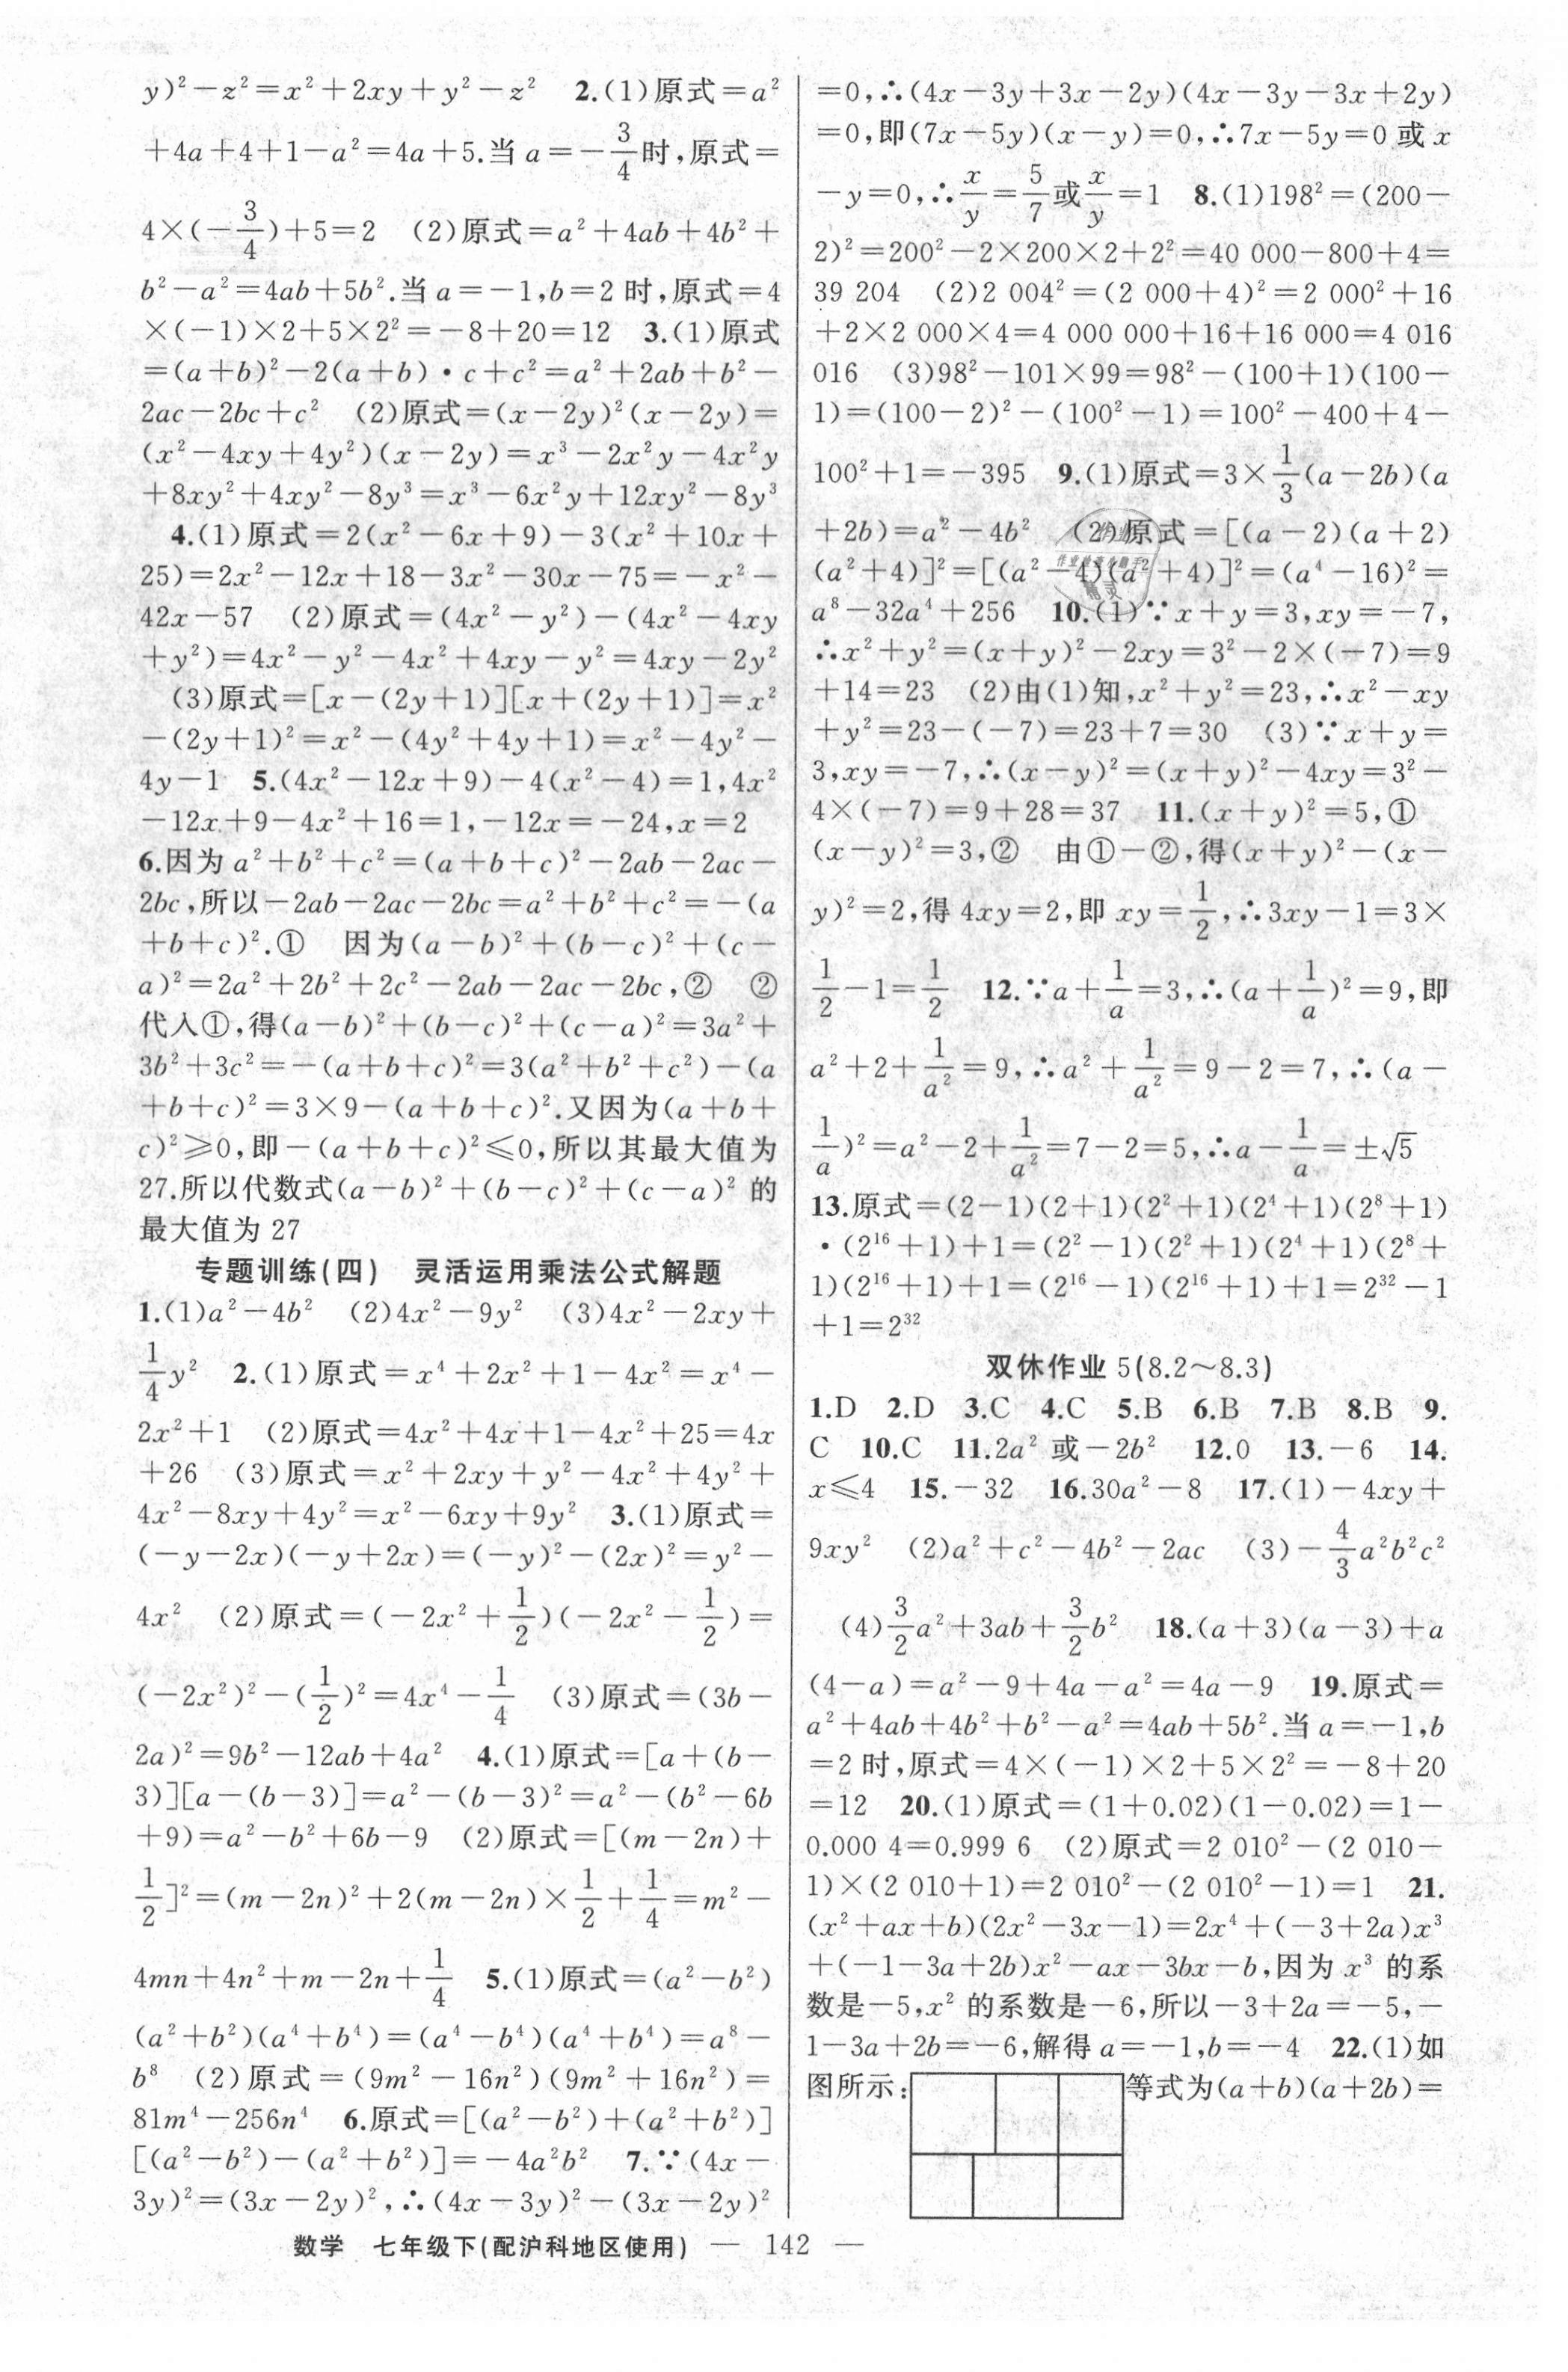 y)²－z²＝x²＋2xy＋y²－z²　2.(1)原式＝a²
＋4a＋4＋1－a²＝4a＋5.当 a＝－3/4时,原式＝
4×(－3/4)＋5＝2　(2)原式＝a²＋4ab＋4b²＋
b²－a²＝4ab＋5b².当 a＝－1,b＝2 时,原式＝4
×(－1)×2＋5×2²＝－8＋20＝12　3.(1)原式
＝(a＋b)²－2(a＋b)·c＋c²＝a²＋2ab＋b²－
2ac－2bc＋c²　(2)原式＝(x－2y)²(x－2y)＝
(x²－4xy＋4y²)(x－2y)＝x³－2x²y－4x²y
＋8xy²＋4xy²－8y³＝x³－6x²y＋12xy²－8y³
4.(1)原式＝2(x²－6x＋9)－3(x²＋10x＋
25)＝2x²－12x＋18－3x²－30x－75＝－x²－
42x－57　(2)原式＝(4x²－y²)－(4x²－4xy
＋y²)＝4x²－y²－4x²＋4xy－y²＝4xy－2y²
(3)原式＝[x－(2y＋1)][x＋(2y＋1)]＝x²
－(2y＋1)²＝x²－(4y²＋4y＋1)＝x²－4y²－
4y－1　5.(4x²－12x＋9)－4(x²－4)＝1,4x²
－12x＋9－4x²＋16＝1,－12x＝－24,x＝2
6.因为 a²＋b²＋c²＝(a＋b＋c)²－2ab－2ac－
2bc,所以－2ab－2ac－2bc＝a²＋b²＋c²＝－(a
＋b＋c)².①　因为(a－b)²＋(b－c)²＋(c－
a)²＝2a²＋2b²＋2c²－2ab－2ac－2bc,②　②
代入①,得(a－b)²＋(b－c)²＋(c－a)²＝3a²＋
3b²＋3c²＝－(a＋b＋c)²＝3(a²＋b²＋c²)－(a
＋b＋c)²＝3×9－(a＋b＋c)².又因为(a＋b＋
c)²≥0,即－(a＋b＋c)²≤0,所以其最大值为
27.所以代数式(a－b)²＋(b－c)²＋(c－a)² 的
最大值为 27
专题训练(四)　灵活运用乘法公式解题
1.(1)a²－4b²　(2)4x²－9y²　(3)4x²－2xy＋
1/4y²　2.(1)原式＝x⁴＋2x²＋1－4x²＝x⁴－
2x²＋1　(2)原式＝4x²＋4x＋1－4x²＋25＝4x
＋26　(3)原式＝x²＋2xy＋y²－4x²＋4y²＋
4x²－8xy＋4y²＝x²－6xy＋9y²　3.(1)原式＝
(－y－2x)(－y＋2x)＝(－y)²－(2x)²＝y²－
4x²　(2)原式＝(－2x²＋1/2)(－2x²－1/2)＝
(－2x²)²－(1/2)²＝4x⁴－1/4　(3)原式＝(3b－
2a)²＝9b²－12ab＋4a²　4.(1)原式＝[a＋(b－
3)][a－(b－3)]＝a²－(b－3)²＝a²－(b²－6b
＋9)＝a²－b²＋6b－9　(2)原式＝[(m－2n)＋
1/2]²＝(m－2n)²＋2(m－2n)×1/2＋1/4＝m²－
4mn＋4n²＋m－2n＋1/4　5.(1)原式＝(a²－b²)
(a²＋b²)(a⁴＋b⁴)＝(a⁴－b⁴)(a⁴＋b⁴)＝a⁸－
b⁸　(2)原式＝(9m²－16n²)(9m²＋16n²)＝
81m⁴－256n⁴　6.原式＝[(a²－b²)＋(a²＋b²)]
[(a²－b²)－(a²＋b²)]＝－4a²b²　7.∵(4x－
3y)²＝(3x－2y)²,∴(4x－3y)²－(3x－2y)²
＝0,∴(4x－3y＋3x－2y)(4x－3y－3x＋2y)
＝0,即(7x－5y)(x－y)＝0,∴7x－5y＝0 或 x
－y＝0,∴x/y＝5/7或x/y＝1　8.(1)198²＝(200－
2)²＝200²－2×200×2＋2²＝40 000－800＋4＝
39 204　(2)2 004²＝(2 000＋4)²＝2 000²＋16
＋2×2 000×4＝4 000 000＋16＋16 000＝4 016
016　(3)98²－101×99＝98²－(100＋1)(100－
1)＝(100－2)²－(100²－1)＝100²－400＋4－
100²＋1＝－395　9.(1)原式＝3×1/3(a－2b)(a
＋2b)＝a²－4b²　(2)原式＝[(a－2)(a＋2)
(a²＋4)]²＝[(a²－4)(a²＋4)]²＝(a⁴－16)²＝
a⁸－32a⁴＋256　10.(1)∵x＋y＝3,xy＝－7,
∴x²＋y²＝(x＋y)²－2xy＝3²－2×(－7)＝9
＋14＝23　(2)由(1)知,x²＋y²＝23,∴x²－xy
＋y²＝23－(－7)＝23＋7＝30　(3)∵x＋y＝
3,xy＝－7,∴(x－y)²＝(x＋y)²－4xy＝3²－
4×(－7)＝9＋28＝37　11.(x＋y)²＝5,①
(x－y)²＝3,②　由①－②,得(x＋y)²－(x－
y)²＝2,得 4xy＝2,即 xy＝1/2,∴3xy－1＝3×
1/2－1＝1/2　12.∵a＋1/a＝3,∴(a＋1/a)²＝9,即
a²＋2＋1/a²＝9,∴a²＋1/a²＝9－2＝7,∴(a－
1/a)²＝a²－2＋1/a²＝7－2＝5,∴a－1/a＝±√5
13.原式＝(2－1)(2＋1)(2²＋1)(2⁴＋1)(2⁸＋1)
·(2¹⁶＋1)＋1＝(2²－1)(2²＋1)(2⁴＋1)(2⁸＋
1)(2¹⁶＋1)＋1＝(2¹⁶－1)(2¹⁶＋1)＋1＝2³²－1
＋1＝2³²
双休作业 5(8.2～8.3)
1.D　2.D　3.C　4.C　5.B　6.B　7.B　8.B　9.
C　10.C　11.2a² 或－2b²　12.0　13.－6　14.
x≤4　15.－32　16.30a²－8　17.(1)－4xy＋
9xy²　(2)a²＋c²－4b²－2ac　(3)－4/3a²b²c²
(4)3/2a²＋3ab＋3/2b²　18.(a＋3)(a－3)＋a
(4－a)＝a²－9＋4a－a²＝4a－9　19.原式＝
a²＋4ab＋4b²＋b²－a²＝4ab＋5b².当 a＝－1,b
＝2 时,原式＝4×(－1)×2＋5×2²＝－8＋20
＝12　20.(1)原式＝(1＋0.02)(1－0.02)＝1－
0.000 4＝0.999 6　(2)原式＝2 010²－(2 010－
1)×(2 010＋1)＝2 010²－(2 010²－1)＝1　21.
(x²＋ax＋b)(2x²－3x－1)＝2x⁴＋(－3＋2a)x³
＋(－1－3a＋2b)x²－ax－3bx－b,因为 x³ 的系
数是－5,x² 的系数是－6,所以－3＋2a＝－5,－
1－3a＋2b＝－6,解得 a＝－1,b＝－4　22.(1)如
图所示:等式为(a＋b)(a＋2b)＝
数学　七年级下(配沪科地区使用)　— 142 —